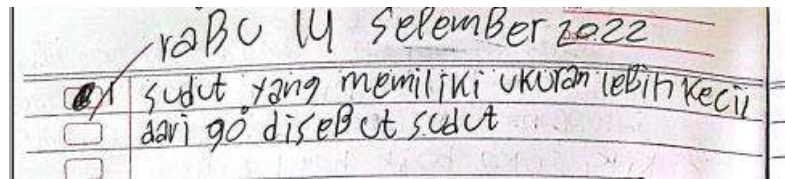 raBu 14 SepemBer 2022
1 sudut yang memiliki ukuran leBih kecil
dari 90° diseBut sudut